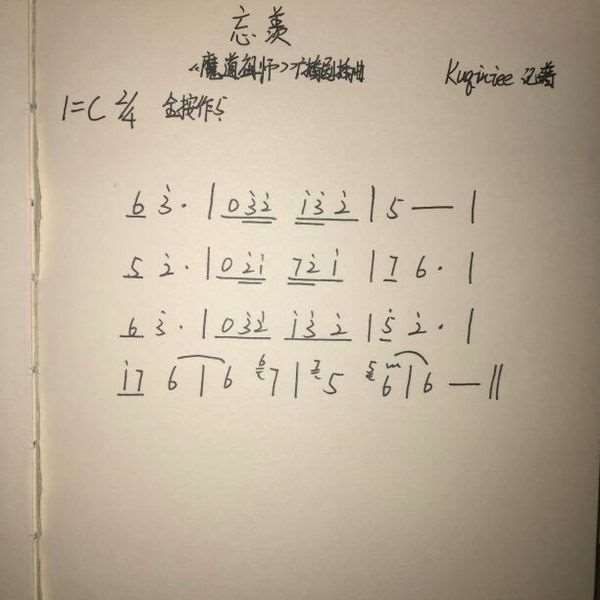 忘羡
《魔道祖师》广播剧插曲
Kuginiee 记谱
1=C 2/4 全按作5
6 3̇ · | 0 3̇ 2̇ 1̇ 3̇ 2̇ | 5 — |
5 2̇ · | 0 2̇ 1̇ 7 2̇ 1̇ | 7 6 · |
6 3̇ · | 0 3̇ 2̇ 1̇ 3̇ 2̇ | 5 2̇ · |
1̇ 7 6 | 6 6 7 | 7 5 5 6 | 6 — ‖